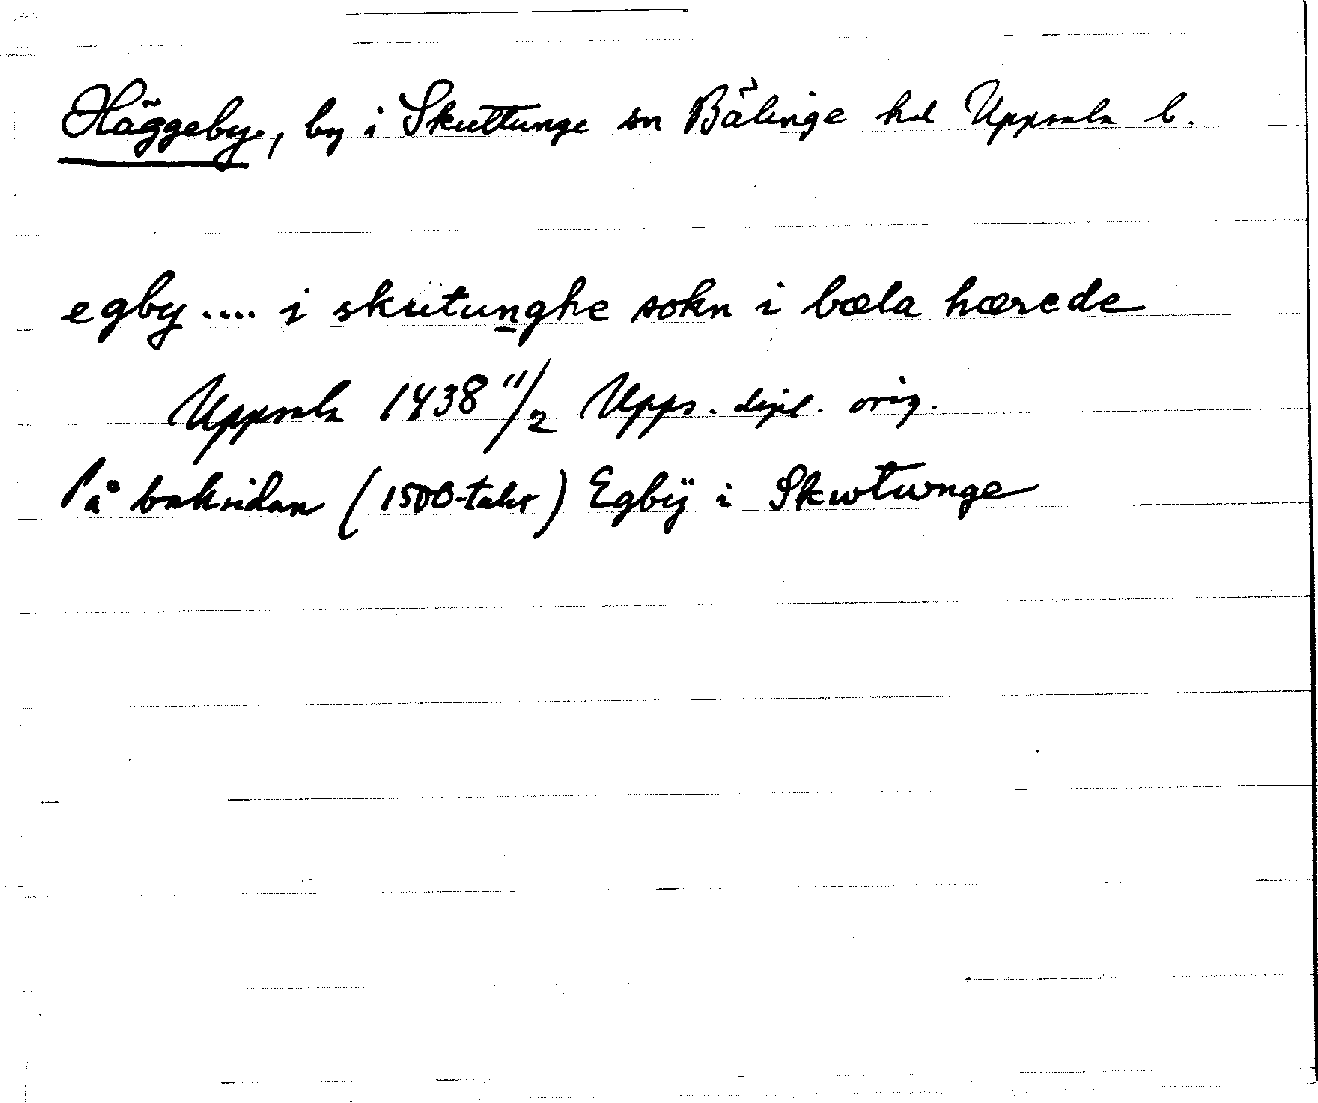 Häggeby, by i Skuttunge sn Bälinge hd Uppsala l.
egby.... i skutunghe sokn i bæla hærede
Uppsala 1438 11/2 Upps. dipl. orig.
På baksidan (1500-talet) Egbÿ i Skwtwnge